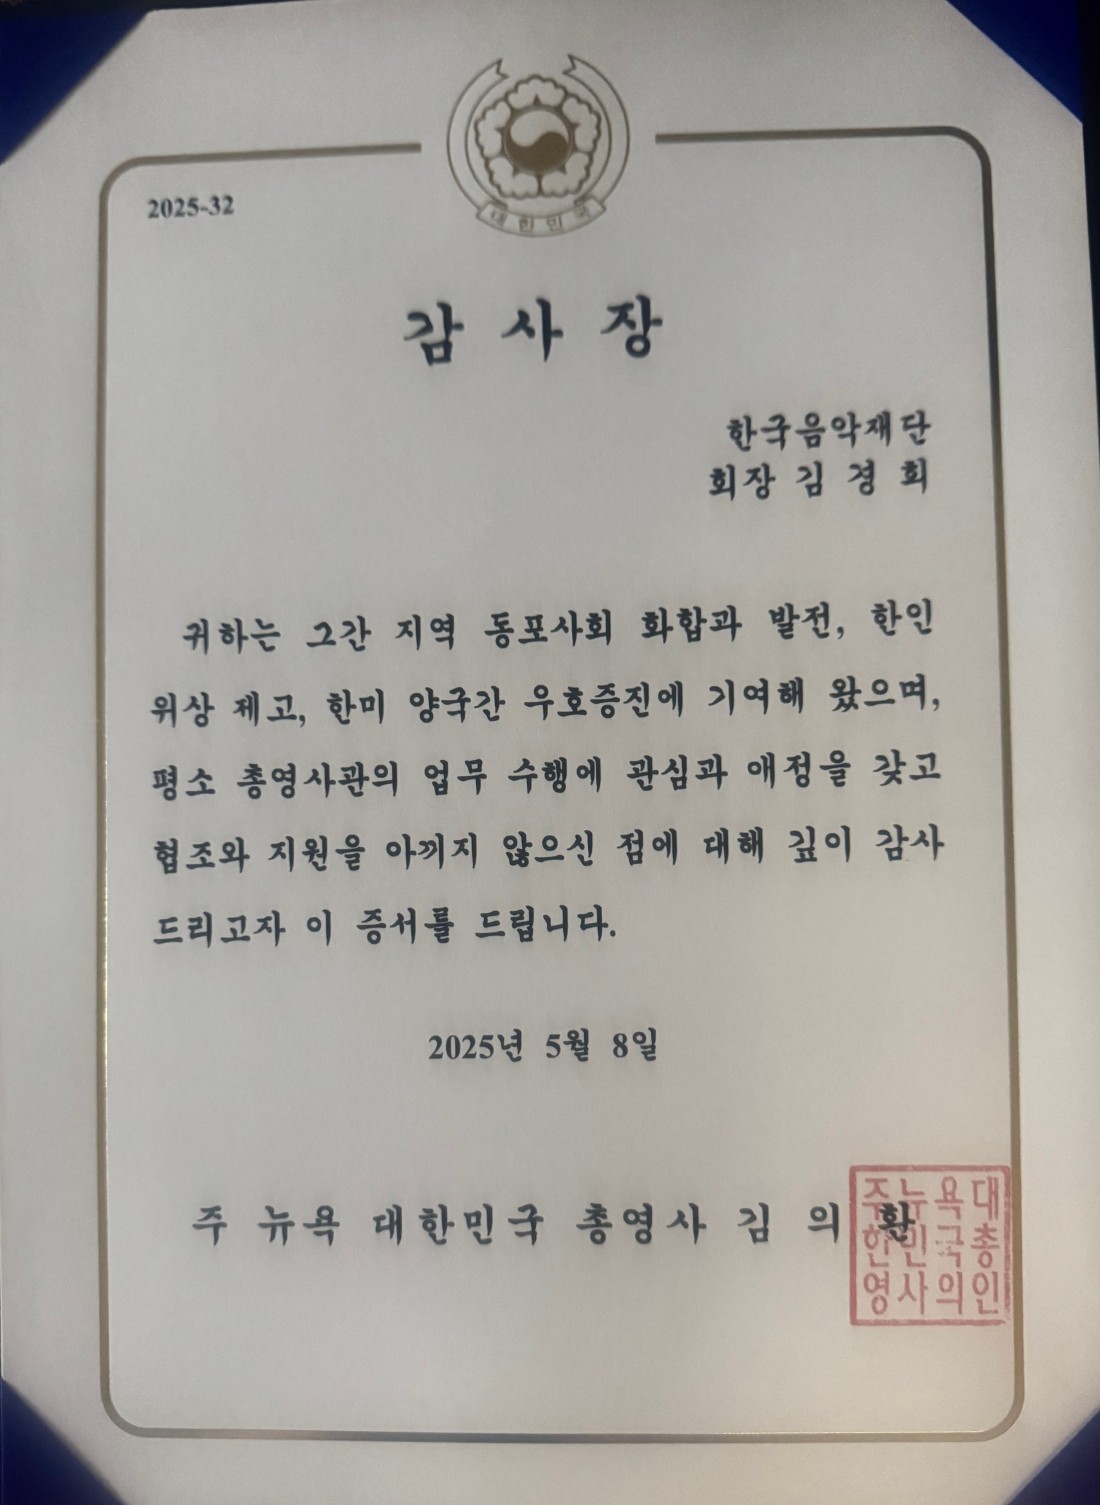 대한민국
2025-32
감 사 장
한국음악재단
회장 김 경 희
귀하는 그간 지역 동포사회 화합과 발전, 한인
위상 제고, 한미 양국간 우호증진에 기여해 왔으며,
평소 총영사관의 업무 수행에 관심과 애정을 갖고
협조와 지원을 아끼지 않으신 점에 대해 깊이 감사
드리고자 이 증서를 드립니다.
2025년 5월 8일
주 뉴욕 대한민국 총영사 김 의 환
주뉴욕대
한민국총
영사의인